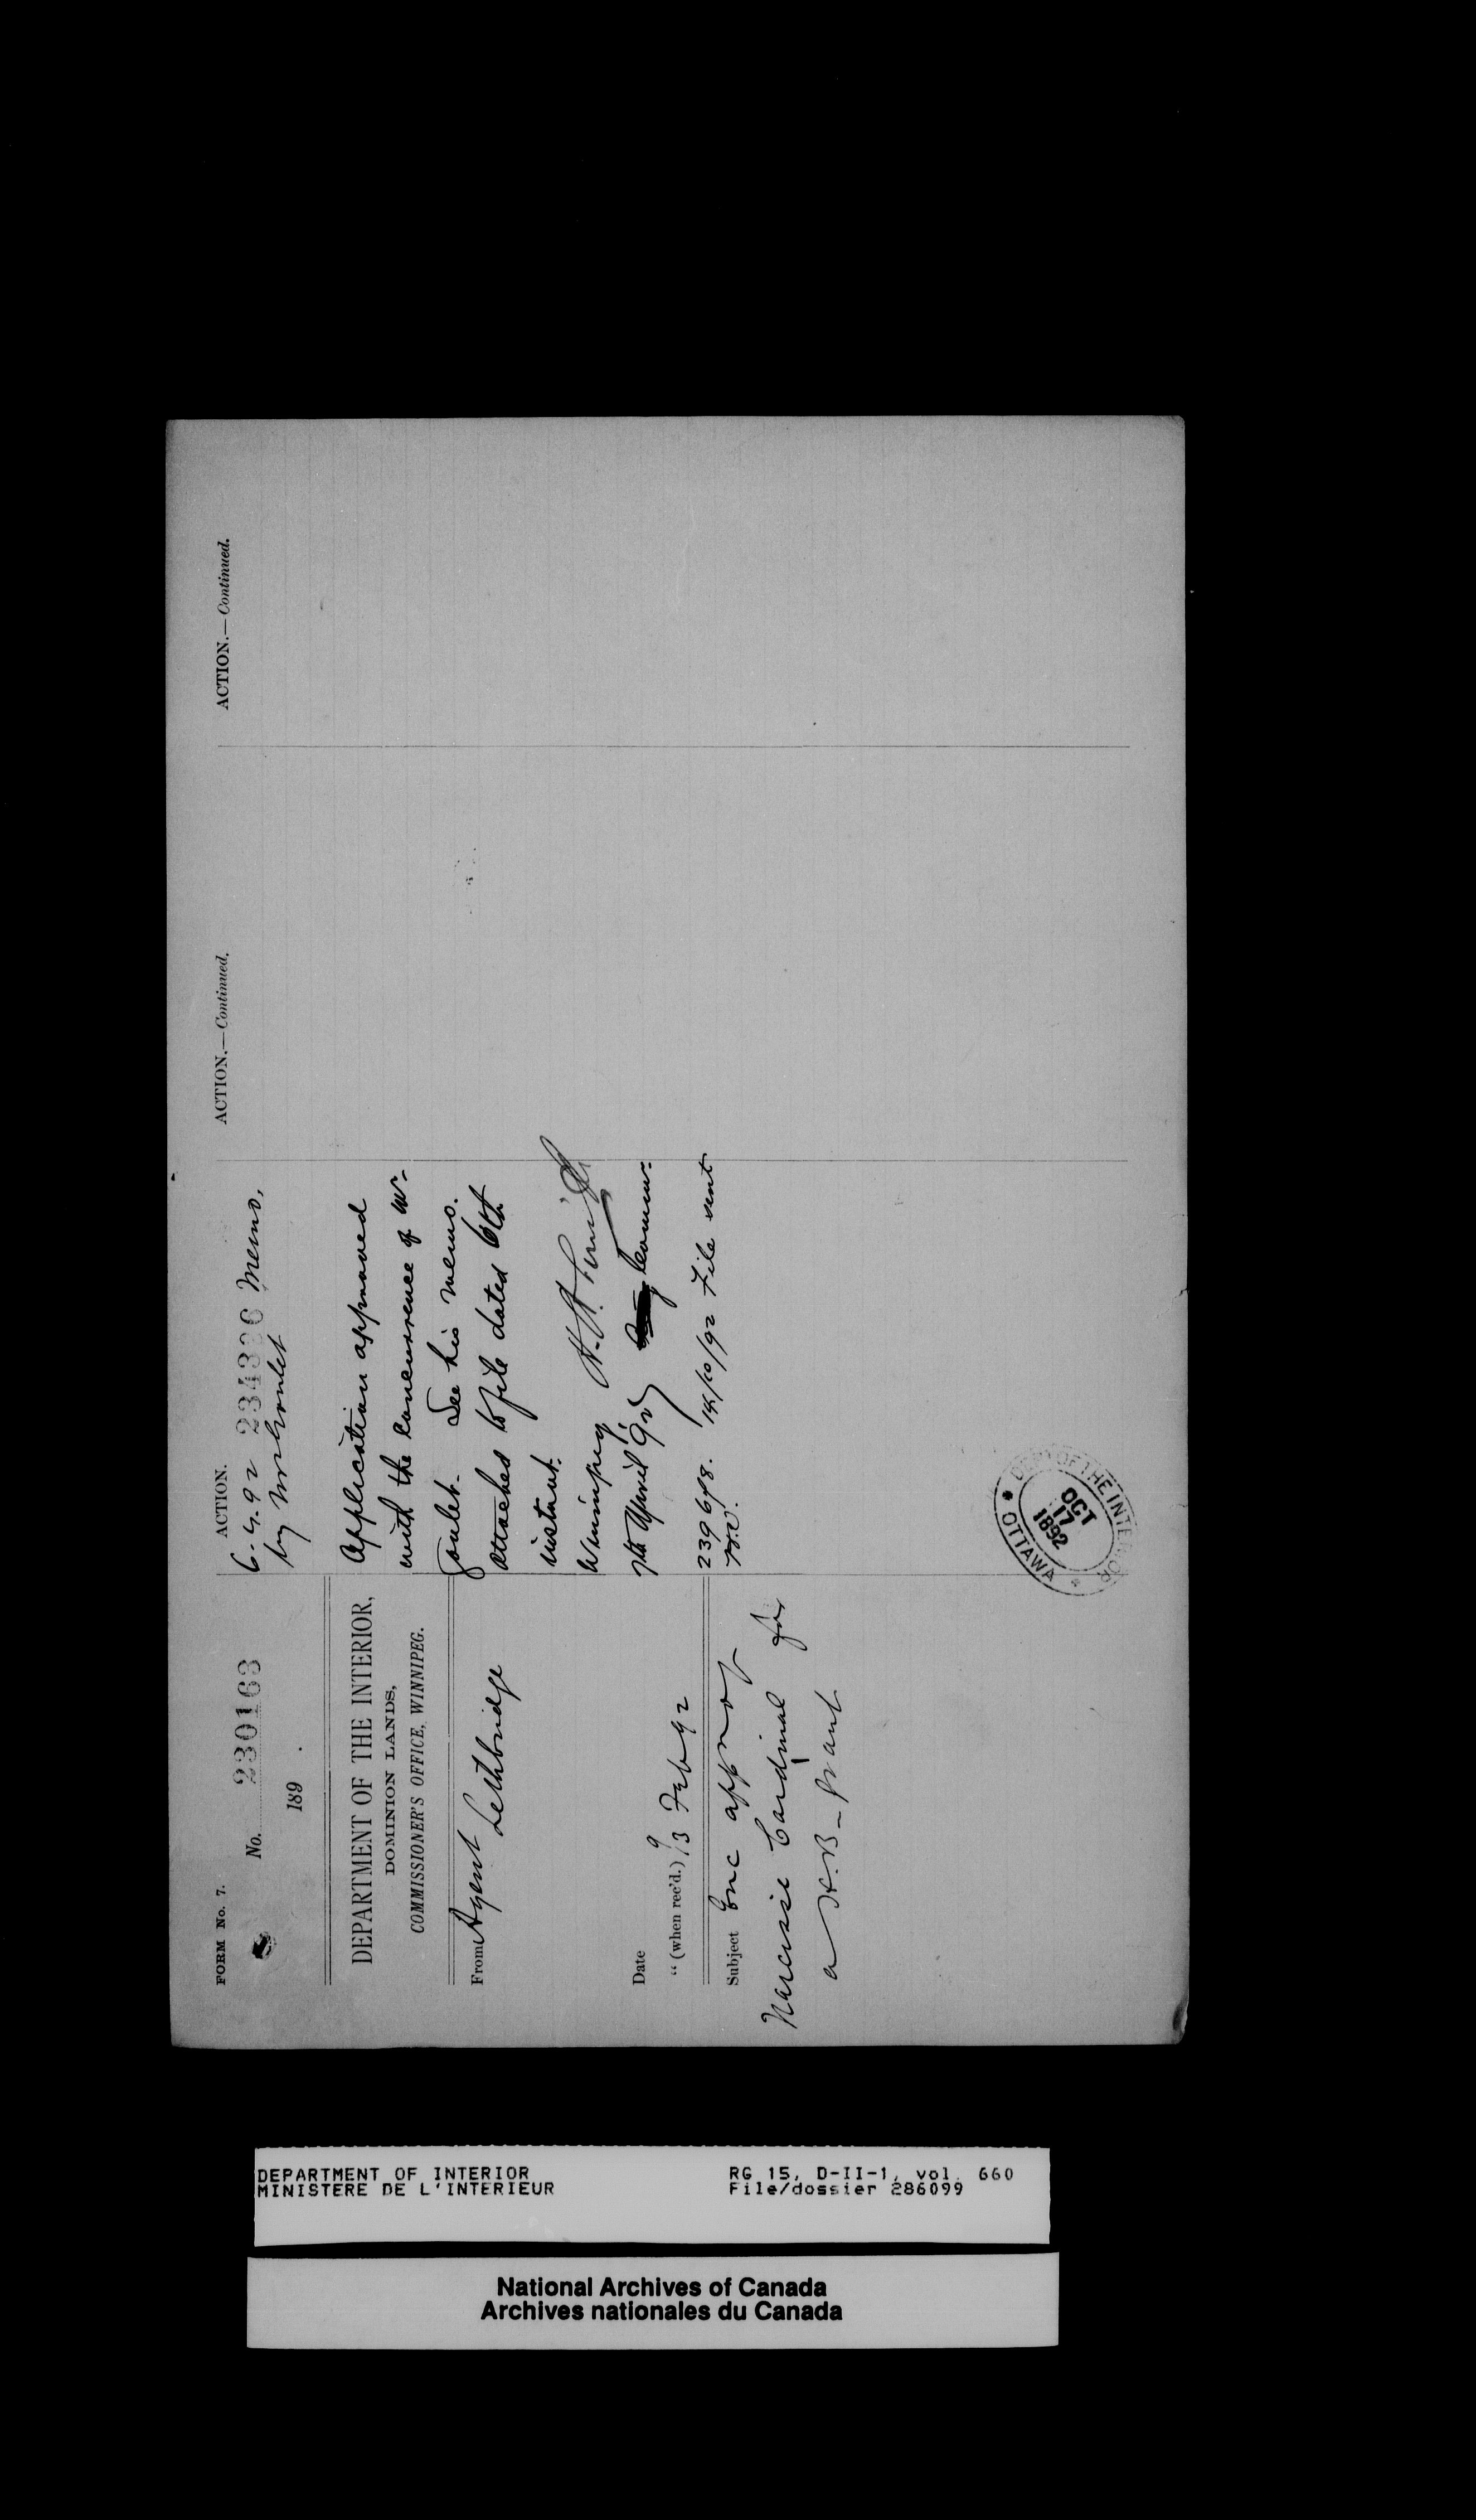 FORM No. 7.
No. 230163
189 .
DEPARTMENT OF THE INTERIOR,
DOMINION LANDS,
COMMISSIONER'S OFFICE, WINNIPEG.
From Agent
Lethbridge
Date
" (when rec'd.) 9/13 Feb 92
Subject Enc appn of
Narcisse Cardinal for
a H.B- grant
ACTION.
6.4.92 234336 Memo,
by Mr Goulet
Application approved
with the concurrence of Mr.
Goulet- See his memo.
attached to file dated 6th
instant.
Winnipeg
7th April '92
Commr.
239698. 14/10/92 File sent
ACTION.—Continued.
ACTION.—Continued.
DEPT OF THE INTERIOR
OCT
17
1892
OTTAWA
DEPARTMENT OF INTERIOR
MINISTERE DE L'INTERIEUR
RG 15, D-II-1, vol. 660
File/dossier 286099
National Archives of Canada
Archives nationales du Canada